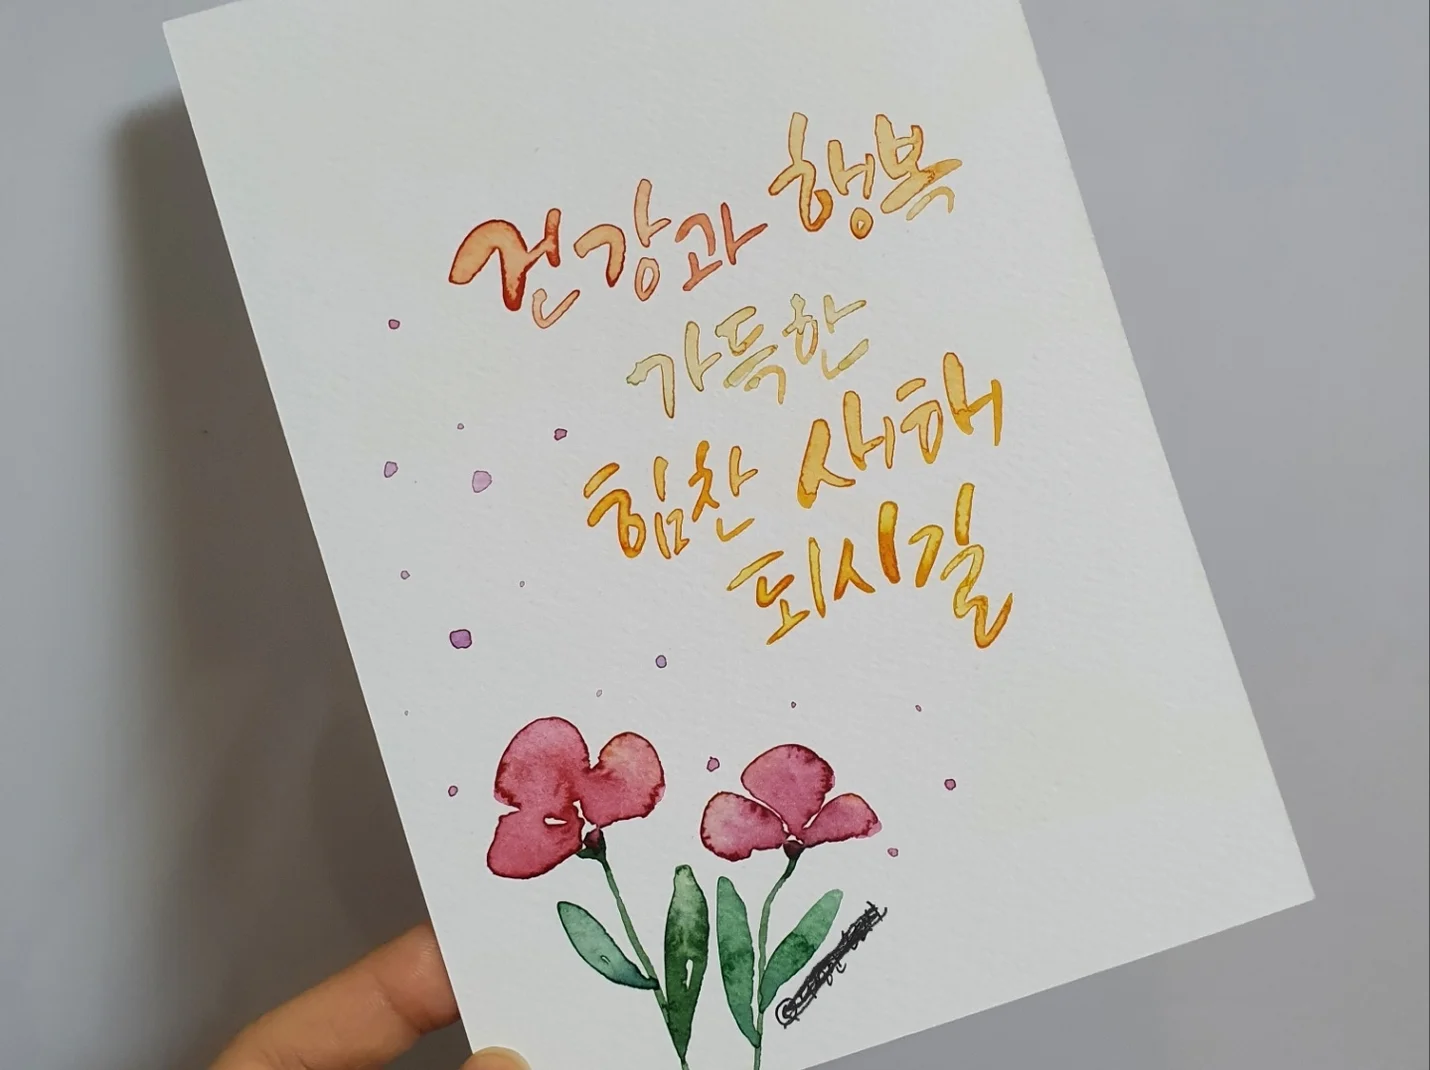 건강과 행복
가득한
힘찬 새해
되시길